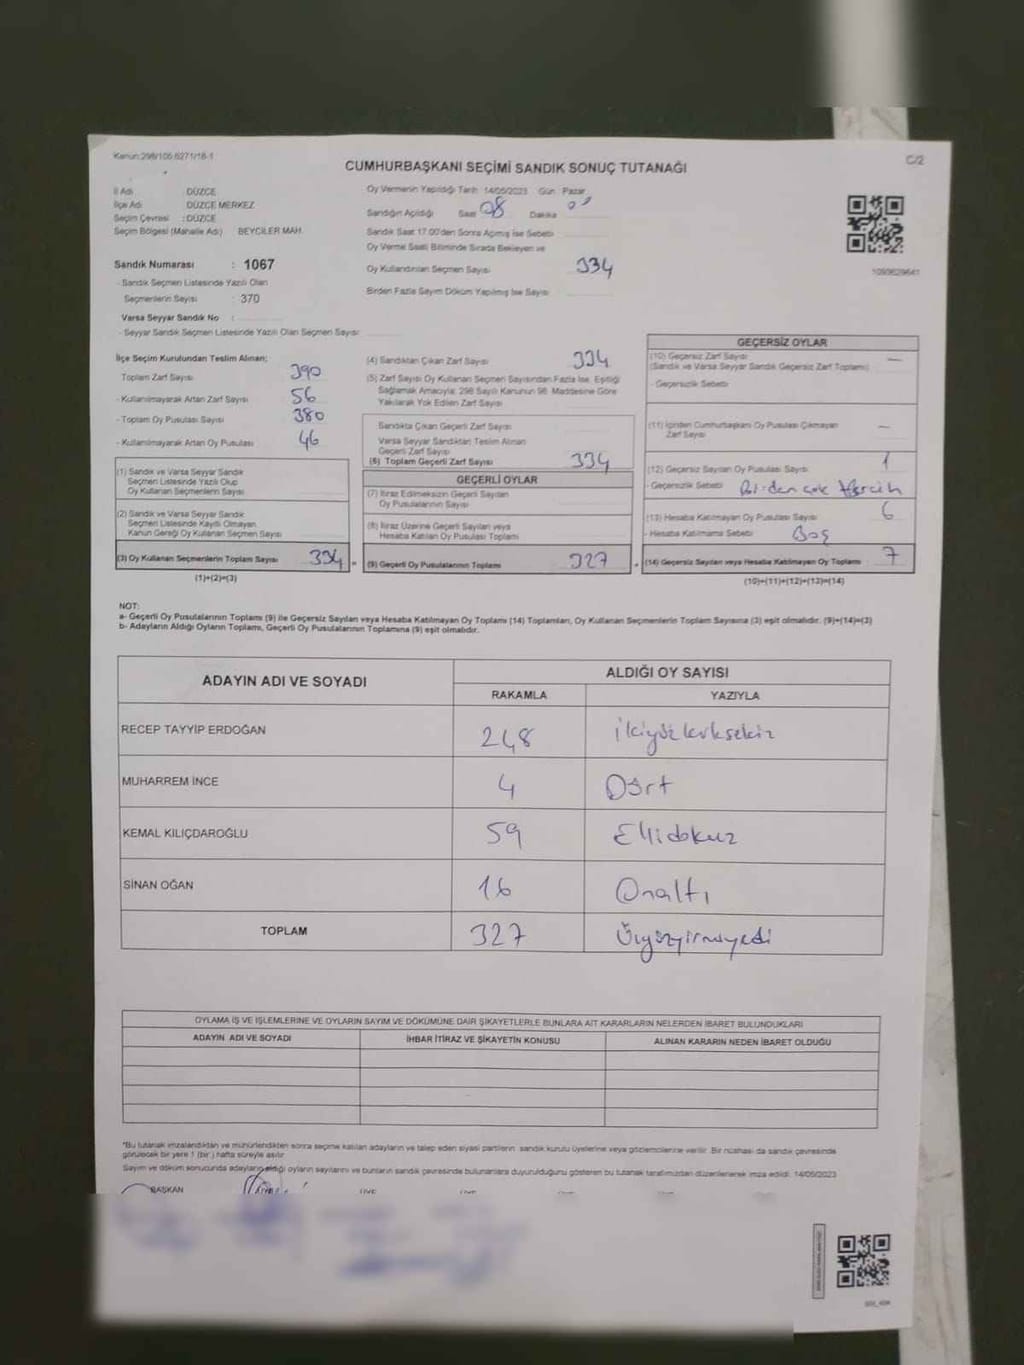 Kanun:298/105 6271/18-1
C/2
CUMHURBAŞKANI SEÇİMİ SANDIK SONUÇ TUTANAĞI
İl Adı : DÜZCE
İlçe Adı : DÜZCE MERKEZ
Seçim Çevresi : DÜZCE
Seçim Bölgesi (Mahalle Adı) BEYCİLER MAH.
Sandık Numarası : 1067
- Sandık Seçmen Listesinde Yazılı Olan
Seçmenlerin Sayısı : 370
Varsa Seyyar Sandık No :
- Seyyar Sandık Seçmen Listesinde Yazılı Olan Seçmen Sayısı
Oy Vermenin Yapıldığı Tarih 14/05/2023 Gün Pazar
Sandığın Açıldığı Saat 08 Dakika
Sandık Saat 17.00'den Sonra Açılmış İse Sebebi
Oy Verme Saati Bitiminde Sırada Bekleyen ve
Oy Kullandırılan Seçmen Sayısı 334
Birden Fazla Sayım Döküm Yapılmış İse Sayısı
1093629641
İlçe Seçim Kurulundan Teslim Alınan;
Toplam Zarf Sayısı 390
- Kullanılmayarak Artan Zarf Sayısı 56
- Toplam Oy Pusulası Sayısı 380
- Kullanılmayarak Artan Oy Pusulası 46
(1) Sandık ve Varsa Seyyar Sandık
Seçmen Listesinde Yazılı Olup
Oy Kullanan Seçmenlerin Sayısı
(2) Sandık ve Varsa Seyyar Sandık
Seçmen Listesinde Kayıtlı Olmayan
Kanun Gereği Oy Kullanan Seçmenlerin Sayısı
(3) Oy Kullanan Seçmenlerin Toplam Sayısı 334
(1)+(2)=(3)
(4) Sandıktan Çıkan Zarf Sayısı 334
(5) Zarf Sayısı Oy Kullanan Seçmen Sayısından Fazla İse, Eşitliği
Sağlamak Amacıyla; 298 Sayılı Kanunun 98. Maddesine Göre
Yakılarak Yok Edilen Zarf Sayısı
Sandıkta Çıkan Geçerli Zarf Sayısı
Varsa Seyyar Sandıktan Teslim Alınan
Geçerli Zarf Sayısı
(6) Toplam Geçerli Zarf Sayısı 334
GEÇERLİ OYLAR
(7) İtiraz Edilmeksizin Geçerli Sayılan
Oy Pusulalarının Sayısı
(8) İtiraz Üzerine Geçerli Sayılan veya
Hesaba Katılan Oy Pusulası Toplamı
(9) Geçerli Oy Pusulalarının Toplamı 327
GEÇERSİZ OYLAR
(10) Geçersiz Zarf Sayısı —
(Sandık ve Varsa Seyyar Sandık Geçersiz Zarf Toplamı)
- Geçersizlik Sebebi
(11) İçinden Cumhurbaşkanı Oy Pusulası Çıkmayan
Zarf Sayısı —
(12) Geçersiz Sayılan Oy Pusulası Sayısı 1
- Geçersizlik Sebebi Birden çok tercih
(13) Hesaba Katılmayan Oy Pusulası Sayısı 6
- Hesaba Katılmama Sebebi Boş
(14) Geçersiz Sayılan veya Hesaba Katılmayan Oy Toplamı 7
(10)+(11)+(12)+(13)=(14)
NOT:
a- Geçerli Oy Pusulalarının Toplamı (9) ile Geçersiz Sayılan veya Hesaba Katılmayan Oy Toplamı (14) Toplamları, Oy Kullanan Seçmenlerin Toplam Sayısına (3) eşit olmalıdır. (9)+(14)=(3)
b- Adayların Aldığı Oyların Toplamı, Geçerli Oy Pusulalarının Toplamına (9) eşit olmalıdır.
ADAYIN ADI VE SOYADI
ALDIĞI OY SAYISI
RAKAMLA YAZIYLA
RECEP TAYYİP ERDOĞAN 248 ikiyüzkırksekiz
MUHARREM İNCE 4 Dört
KEMAL KILIÇDAROĞLU 59 Ellidokuz
SİNAN OĞAN 16 Onaltı
TOPLAM 327 Üçyüzyirmiyedi
OYLAMA İŞ VE İŞLEMLERİNE VE OYLARIN SAYIM VE DÖKÜMÜNE DAİR ŞİKAYETLERLE BUNLARA AİT KARARLARIN NELERDEN İBARET BULUNDUKLARI
ADAYIN ADI VE SOYADI İHBAR İTİRAZ VE ŞİKAYETİN KONUSU ALINAN KARARIN NEDEN İBARET OLDUĞU
*Bu tutanak imzalandıktan ve mühürlendikten sonra seçime katılan adayların ve talep eden siyasi partilerin sandık kurulu üyelerine veya gözlemcilerine verilir. Bir nüshası da sandık çevresinde
görülecek bir yere 1 (bir) hafta süreyle asılır
Sayım ve döküm sonucunda adayların aldığı oyların sayılarını ve bunların sandık çevresinde bulunanlara duyurulduğunu gösteren bu tutanak tarafımızdan düzenlenerek imza edildi. 14/05/2023
BAŞKAN